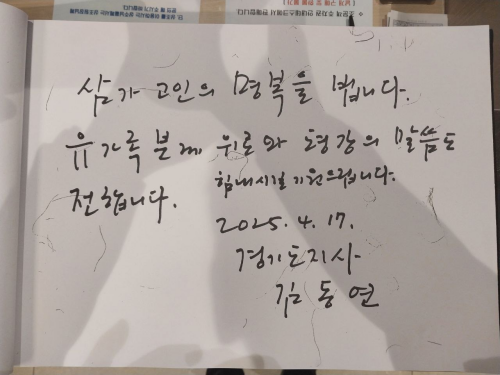 삼가 고인의 명복을 빕니다.
유가족분께 위로와 평강의 말씀도
전합니다.
힘내시길 기원드립니다.
2025. 4. 17.
경기도지사
김동연